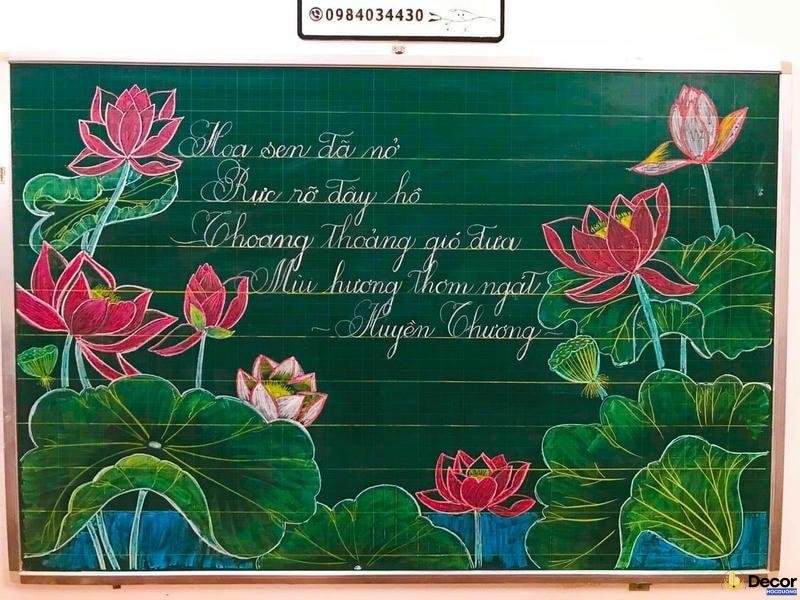 0984034430
Hoa sen đã nở
Rực rỡ đầy hồ
Thoang thoảng gió đưa
Mùi hương thơm ngát
~ Huyền Thương ~
Decor
HOCDUONG